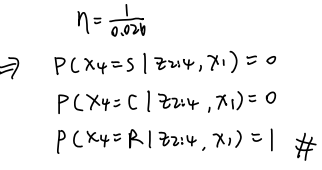 η = 1/0.026
⇒ P(x4=S | z2:4, x1) = 0
P(x4=C | z2:4, x1) = 0
P(x4=R | z2:4, x1) = 1 #